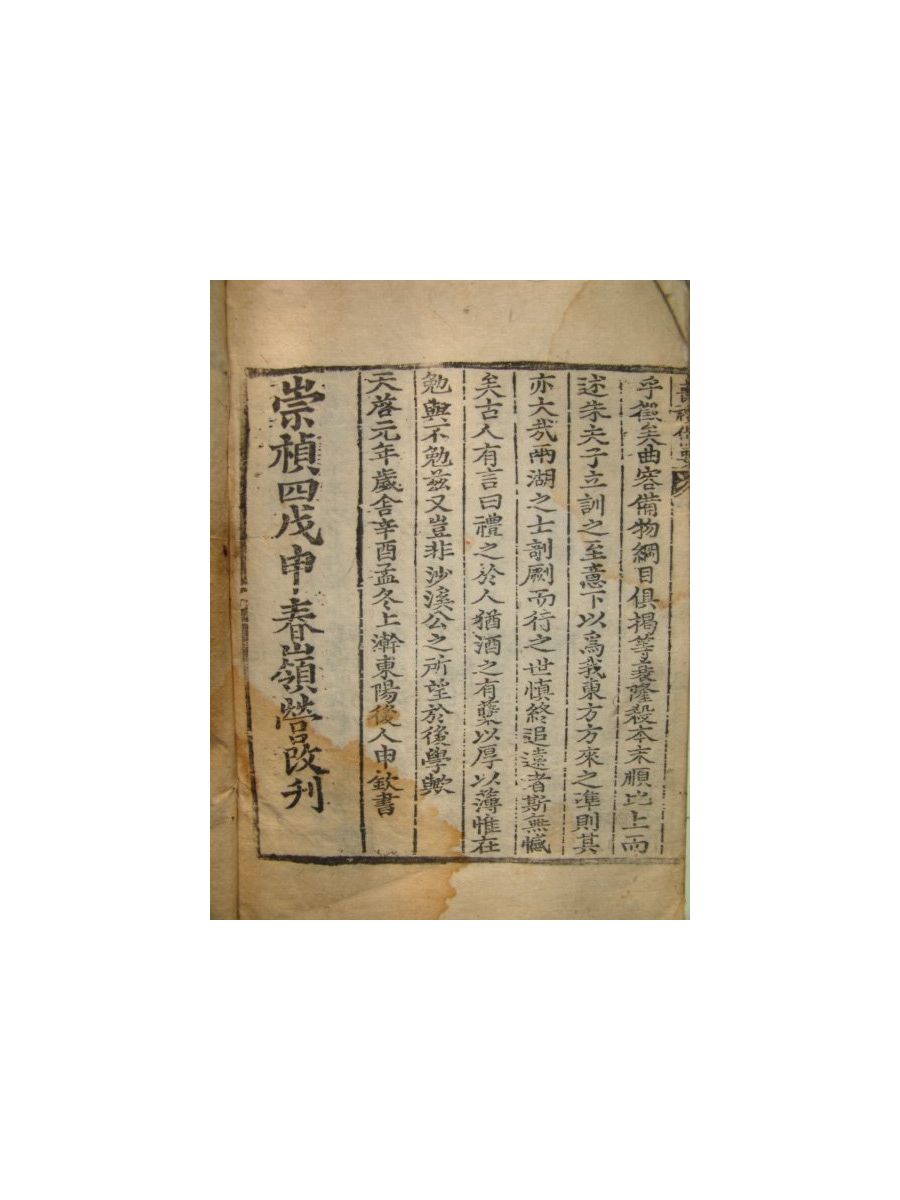 乎徵矣曲容備物綱目俱揭等衰隆殺本末順比上而
述朱夫子立訓之至意下以爲我東方方來之準則其
亦大哉兩湖之士剞劂而行之世愼終追遠者斯無憾
矣古人有言曰禮之於人猶酒之有糱以厚以薄惟在
勉與不勉玆又豈非沙溪公之所望於後學歟
天啓元年歲舍辛酉孟冬上澣東陽後人申欽書
崇禎四戊申春嶺營改刊